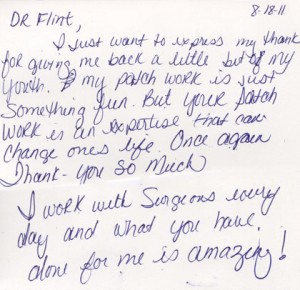 8-18-11
DR Flint,
I just want to express my thank
for giving me back a little bit of my
youth. my patch work is just
Something fun. But your patch
work is an expertise that can
Change ones life. Once again
Thank-you so much
I work with Surgeons every
day and what you have
done for me is amazing!